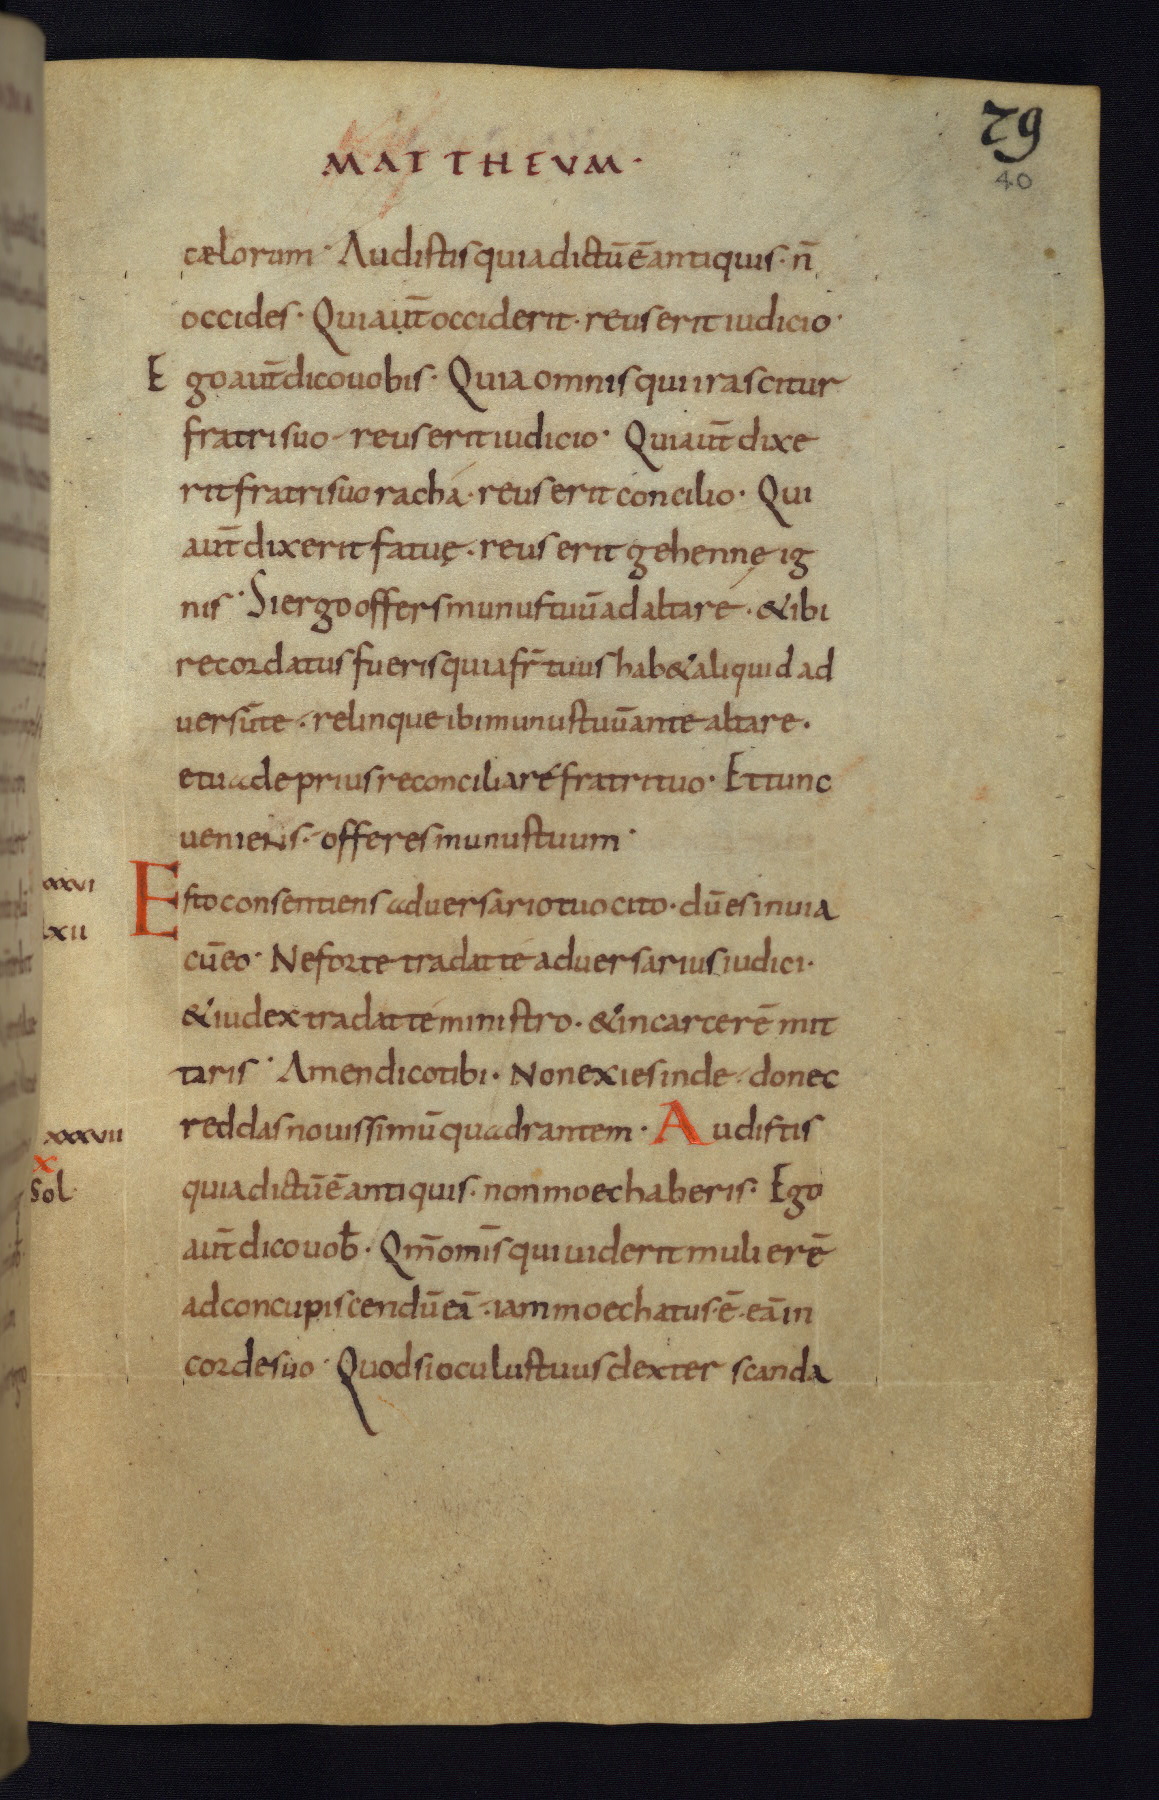 MATTHEVM·
29
40
cælorum· Audistis quia dictū ē antiquis· n̄
occides· Qui aut̄ occiderit· reus erit iudicio·
Ego aut̄ dico uobis· Quia omnis qui irascitur
fratri suo· reus erit iudicio· Qui aut̄ dixe
rit fratri suo racha· reus erit concilio· Qui
aut̄ dixerit fatuę· reus erit gehennę ig
nis· Si ergo offers munus tuū ad altare· & ibi
recordatus fueris quia fr̄ tuus hab& aliquid ad
uersū te· relinque ibi munus tuū ante altare·
et uade prius reconciliare fratri tuo· Et tunc
ueniens· offeres munus tuum·
xxxvi
Esto consentiens aduersario tuo cito· dū es in uia
lxii
cū eo· Ne forte tradat te aduersarius iudici·
& iudex tradat te ministro· & in carcerē mit
taris· Amen dico tibi· Non exies inde· donec
reddas nouissimū quadrantem· Audistis
xxxvii
x
quia dictū ē antiquis· non moechaberis· Ego
Sol
aut̄ dico uob̄· Qm̄ om̄is qui uiderit mulierē
ad concupiscendū eā· iam moechatus ē eā in
corde suo· Quod si oculus tuus dexter scanda